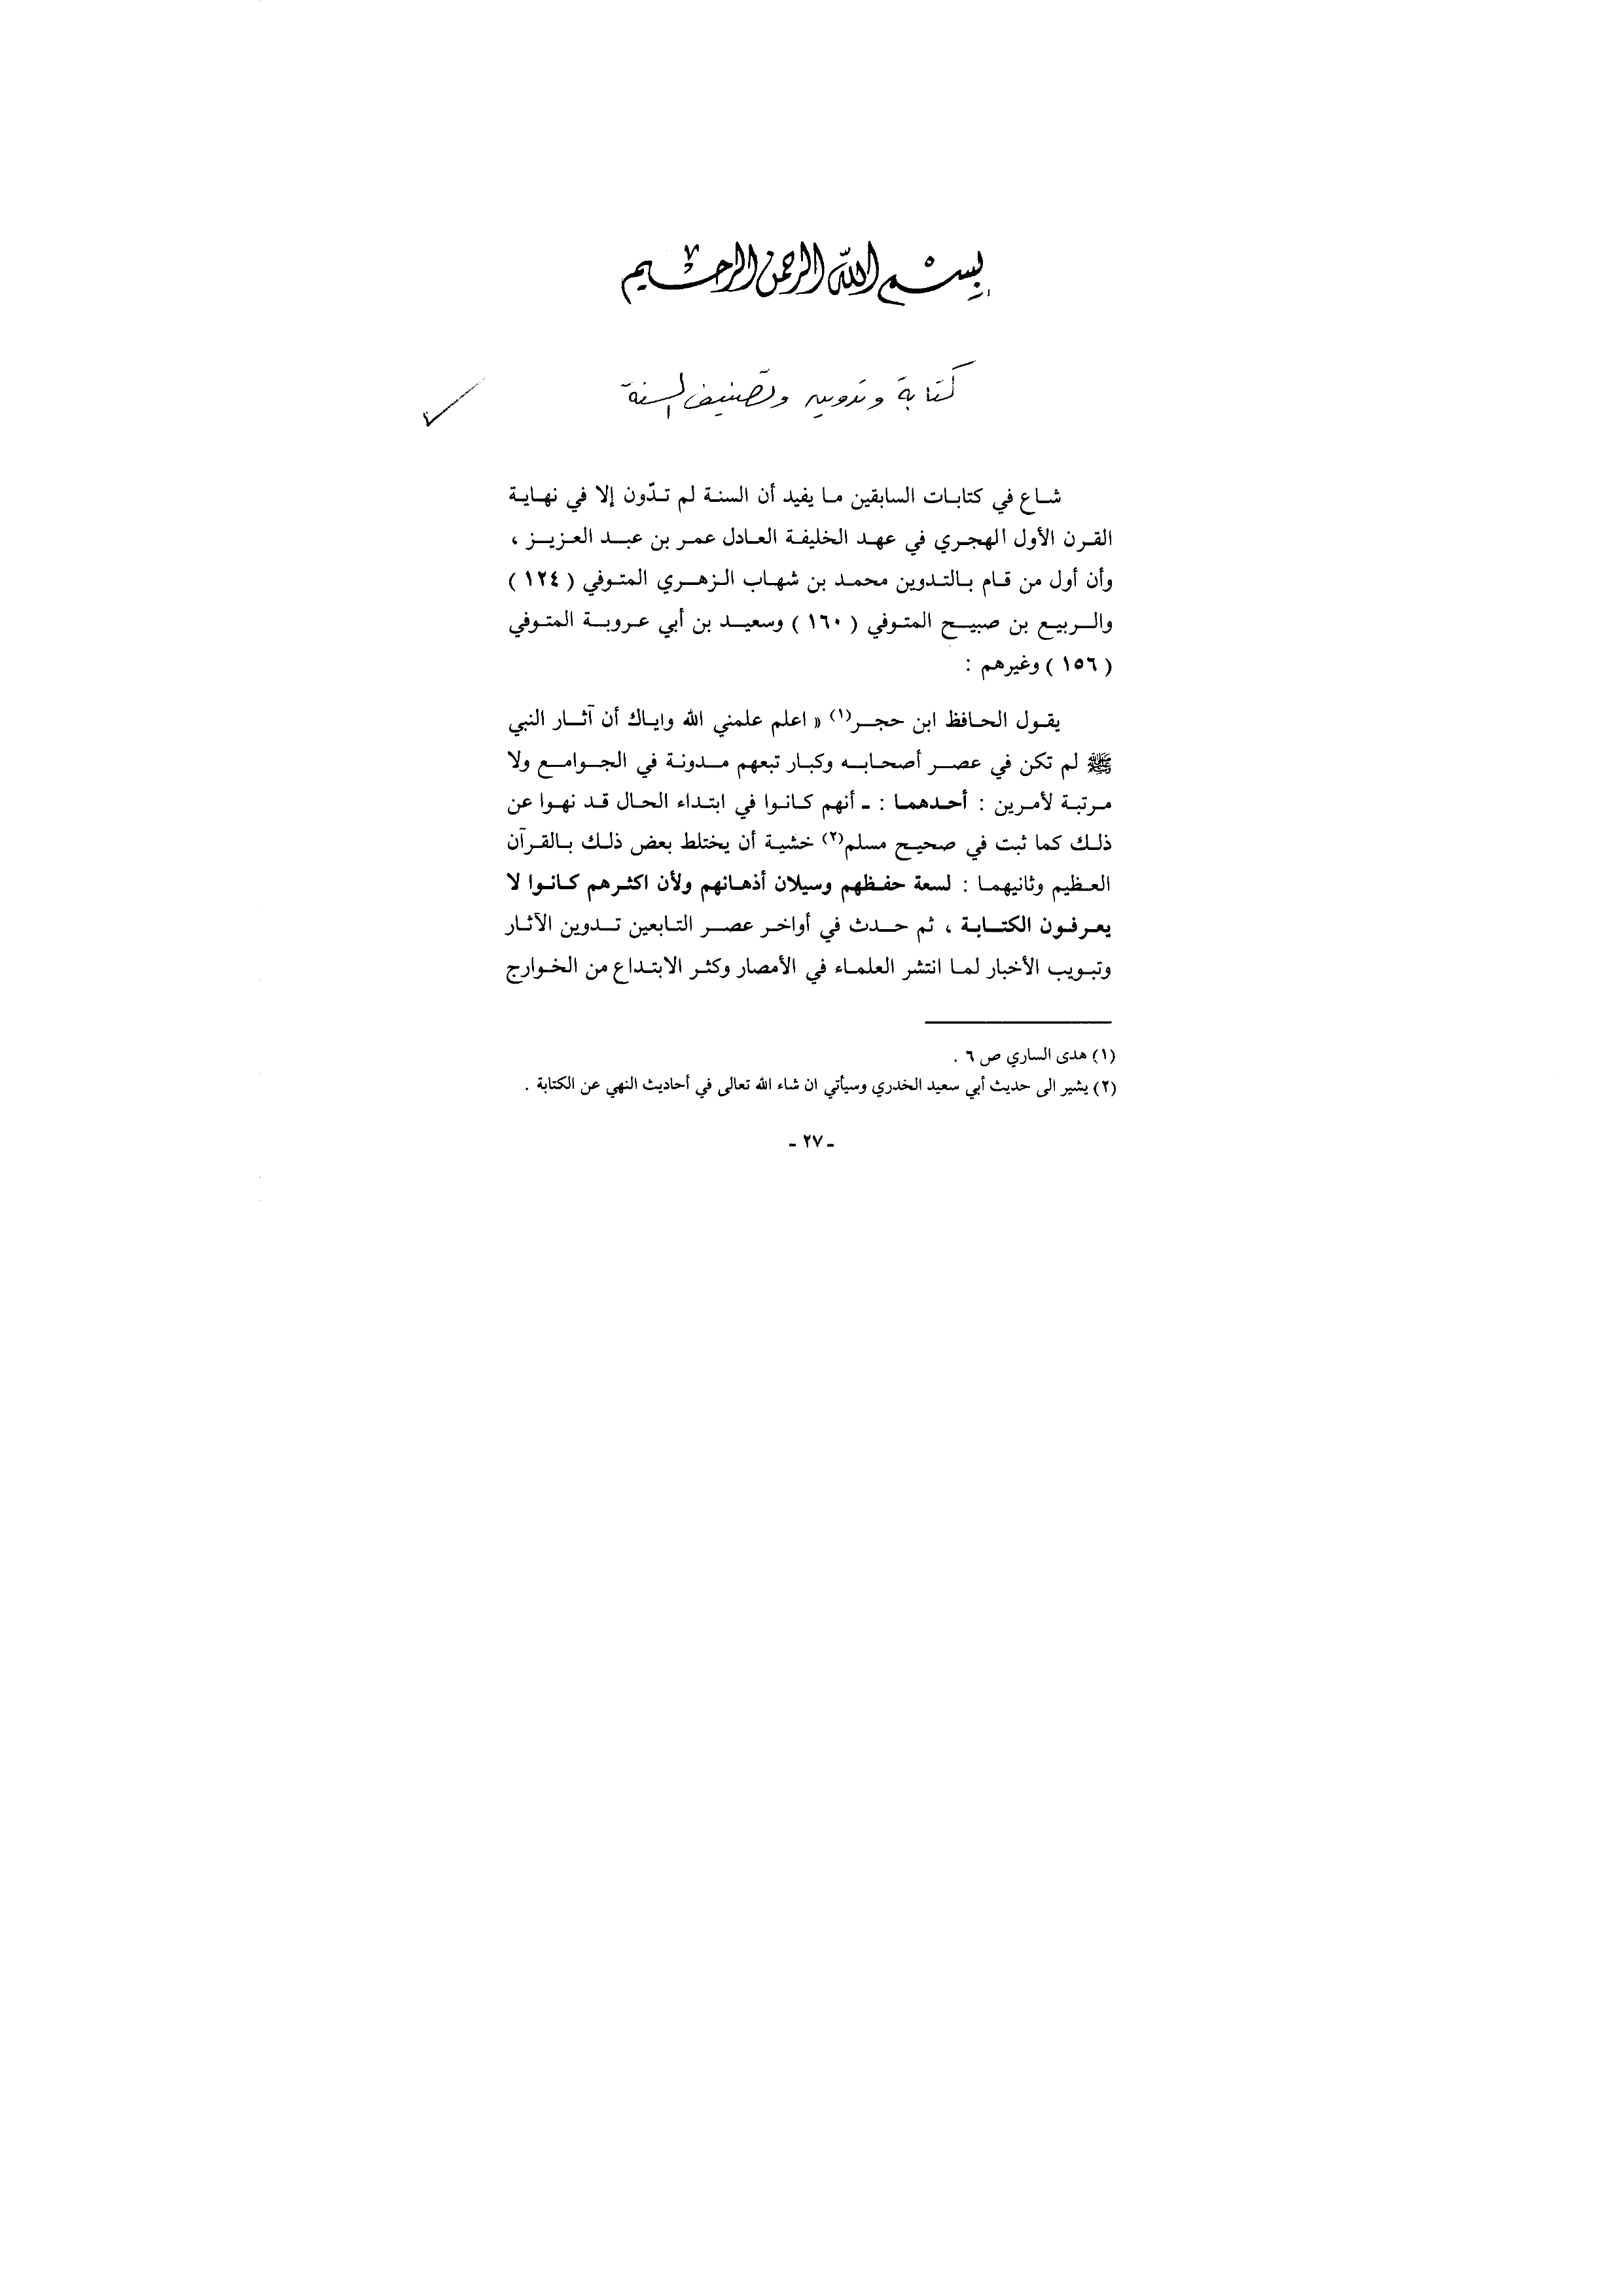 بسم الله الرحمن الرحيم
كتابة وتدوين وتصنيف السنة
شاع في كتابات السابقين ما يفيد أن السنة لم تدّون إلا في نهاية
القرن الأول الهجري في عهد الخليفة العادل عمر بن عبد العزيز ،
وأن أول من قام بالتدوين محمد بن شهاب الزهري المتوفي ( ١٢٤ )
والربيع بن صبيح المتوفي ( ١٦٠ ) وسعيد بن أبي عروبة المتوفي
( ١٥٦ ) وغيرهم :
يقول الحافظ ابن حجر(١) « اعلم علمني الله واياك أن آثار النبي
ﷺ لم تكن في عصر أصحابه وكبار تبعهم مدونة في الجوامع ولا
مرتبة لأمرين : أحدهما : ـ أنهم كانوا في ابتداء الحال قد نهوا عن
ذلك كما ثبت في صحيح مسلم(٢) خشية أن يختلط بعض ذلك بالقرآن
العظيم وثانيهما : لسعة حفظهم وسيلان أذهانهم ولأن اكثرهم كانوا لا
يعرفون الكتابة ، ثم حدث في أواخر عصر التابعين تدوين الآثار
وتبويب الأخبار لما انتشر العلماء في الأمصار وكثر الابتداع من الخوارج
(١) هدى الساري ص ٦ .
(٢) يشير الى حديث أبي سعيد الخدري وسيأتي ان شاء الله تعالى في أحاديث النهي عن الكتابة .
ـ ٢٧ ـ